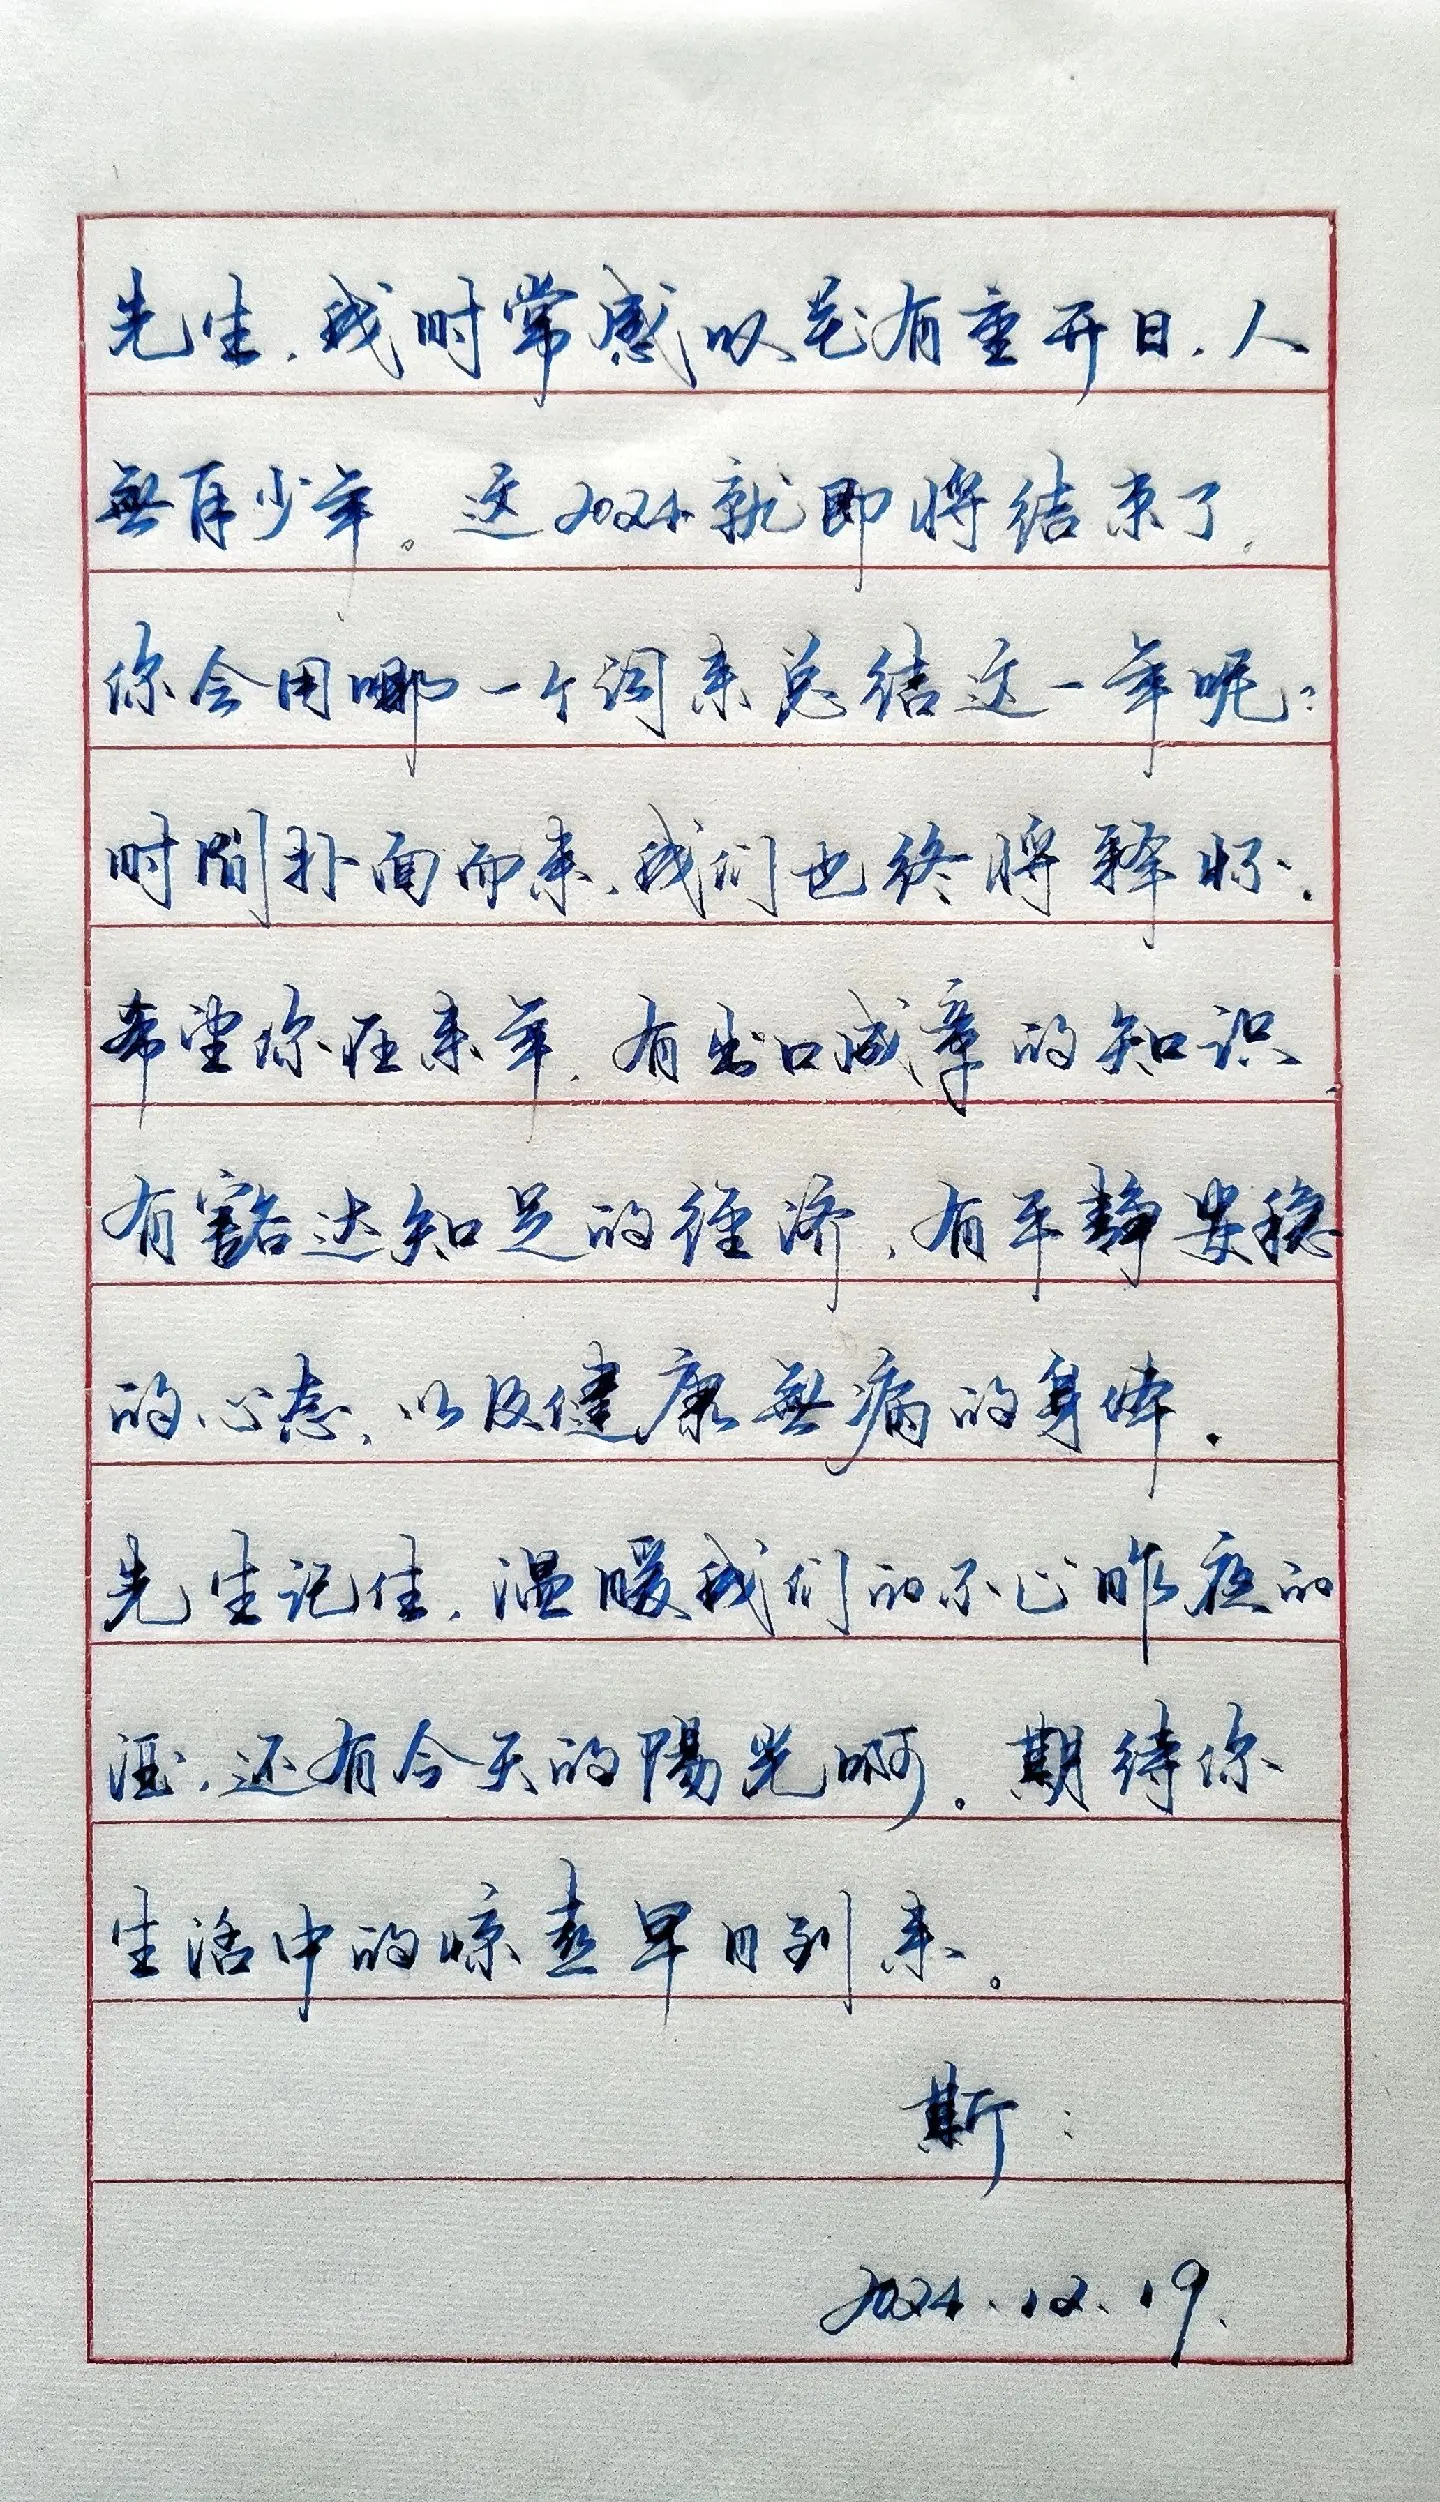 先生，我时常感叹花有重开日，人
無再少年。这2024就即将结束了，
你会用哪一个词来总结这一年呢：
时间扑面而来，我们也终将释怀．
希望你在来年，有出口成章的知识，
有豁达知足的经济，有平静安稳
的心态，以及健康無病的身体．
先生记住，温暖我们的不止昨夜的
酒，还有今天的陽光啊。期待你
生活中的惊喜早日到来。
斯：
2024.12.19.